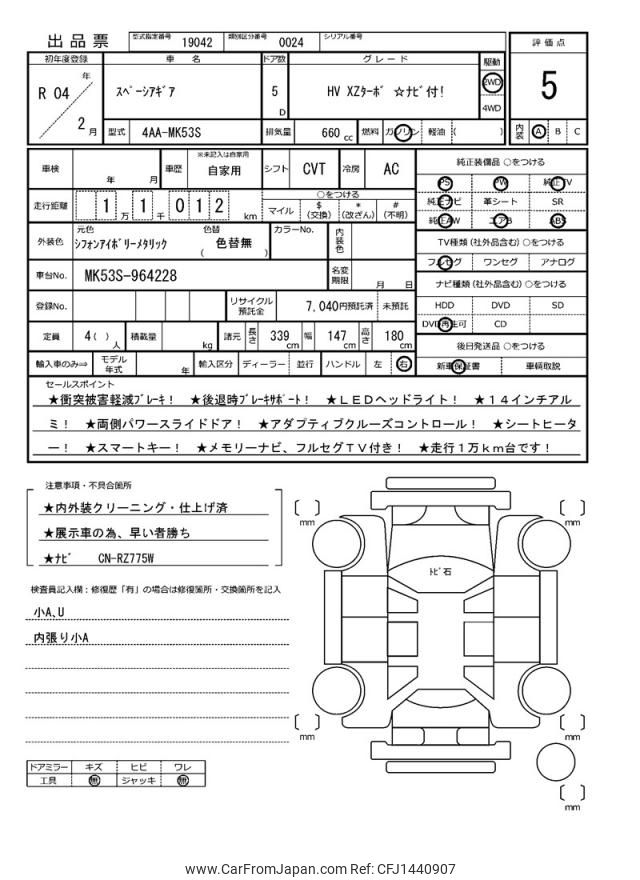 出品票 型式指定番号 19042 類別区分番号 0024 シリアル番号
評価点
5
内装 A B C
初年度登録 車名 ドア数 グレード 駆動
R 04 年 2 月
スペーシアギア 5 D HV XZターボ ☆ナビ付! 2WD 4WD
型式 4AA-MK53S 排気量 660 cc 燃料 ガソリン 軽油 ( )
車検 年 月 車歴 ※未記入は自家用 自家用 シフト CVT 冷房 AC
走行距離 1 万 1 千 0 1 2 km
○をつける
マイル $(交換) *(改ざん) #(不明)
外装色 元色 シフォンアイボリーメタリック 色替 ( 色替無 ) カラーNo. 内装色
車台No. MK53S-964228 名変期限 月 日
登録No. リサイクル預託金 7,040円預託済 未預託
定員 4( )人 積載量 kg 諸元 長さ 339 cm 幅 147 cm 高さ 180 cm
輸入車のみ⇒ モデル年式 年 輸入区分 ディーラー 並行 ハンドル 左 右
純正装備品 ○をつける
PS PW 純正TV
純正ナビ 革シート SR
純正AW エアB ABS
TV種類(社外品含む)○をつける
フルセグ ワンセグ アナログ
ナビ種類(社外品含む)○をつける
HDD DVD SD
DVD再生可 CD
後日発送品 ○をつける
新車保証書 車輌取説
セールスポイント
★衝突被害軽減ブレーキ! ★後退時ブレーキサポート! ★LEDヘッドライト! ★14インチアル
ミ! ★両側パワースライドドア! ★アダプティブクルーズコントロール! ★シートヒータ
ー! ★スマートキー! ★メモリーナビ、フルセグTV付き! ★走行1万km台です!
注意事項・不具合箇所
★内外装クリーニング・仕上げ済
★展示車の為、早い者勝ち
★ナビ CN-RZ775W
検査員記入欄:修復歴「有」の場合は修復箇所・交換箇所を記入
小A、U
内張り小A
ドアミラー キズ ヒビ ワレ
工具 無 ジャッキ 無
[ ] mm
[ ] mm
トビ石
[ ] mm
[ ] mm
[ ] mm
www.CarFromJapan.com Ref: CFJ1440907